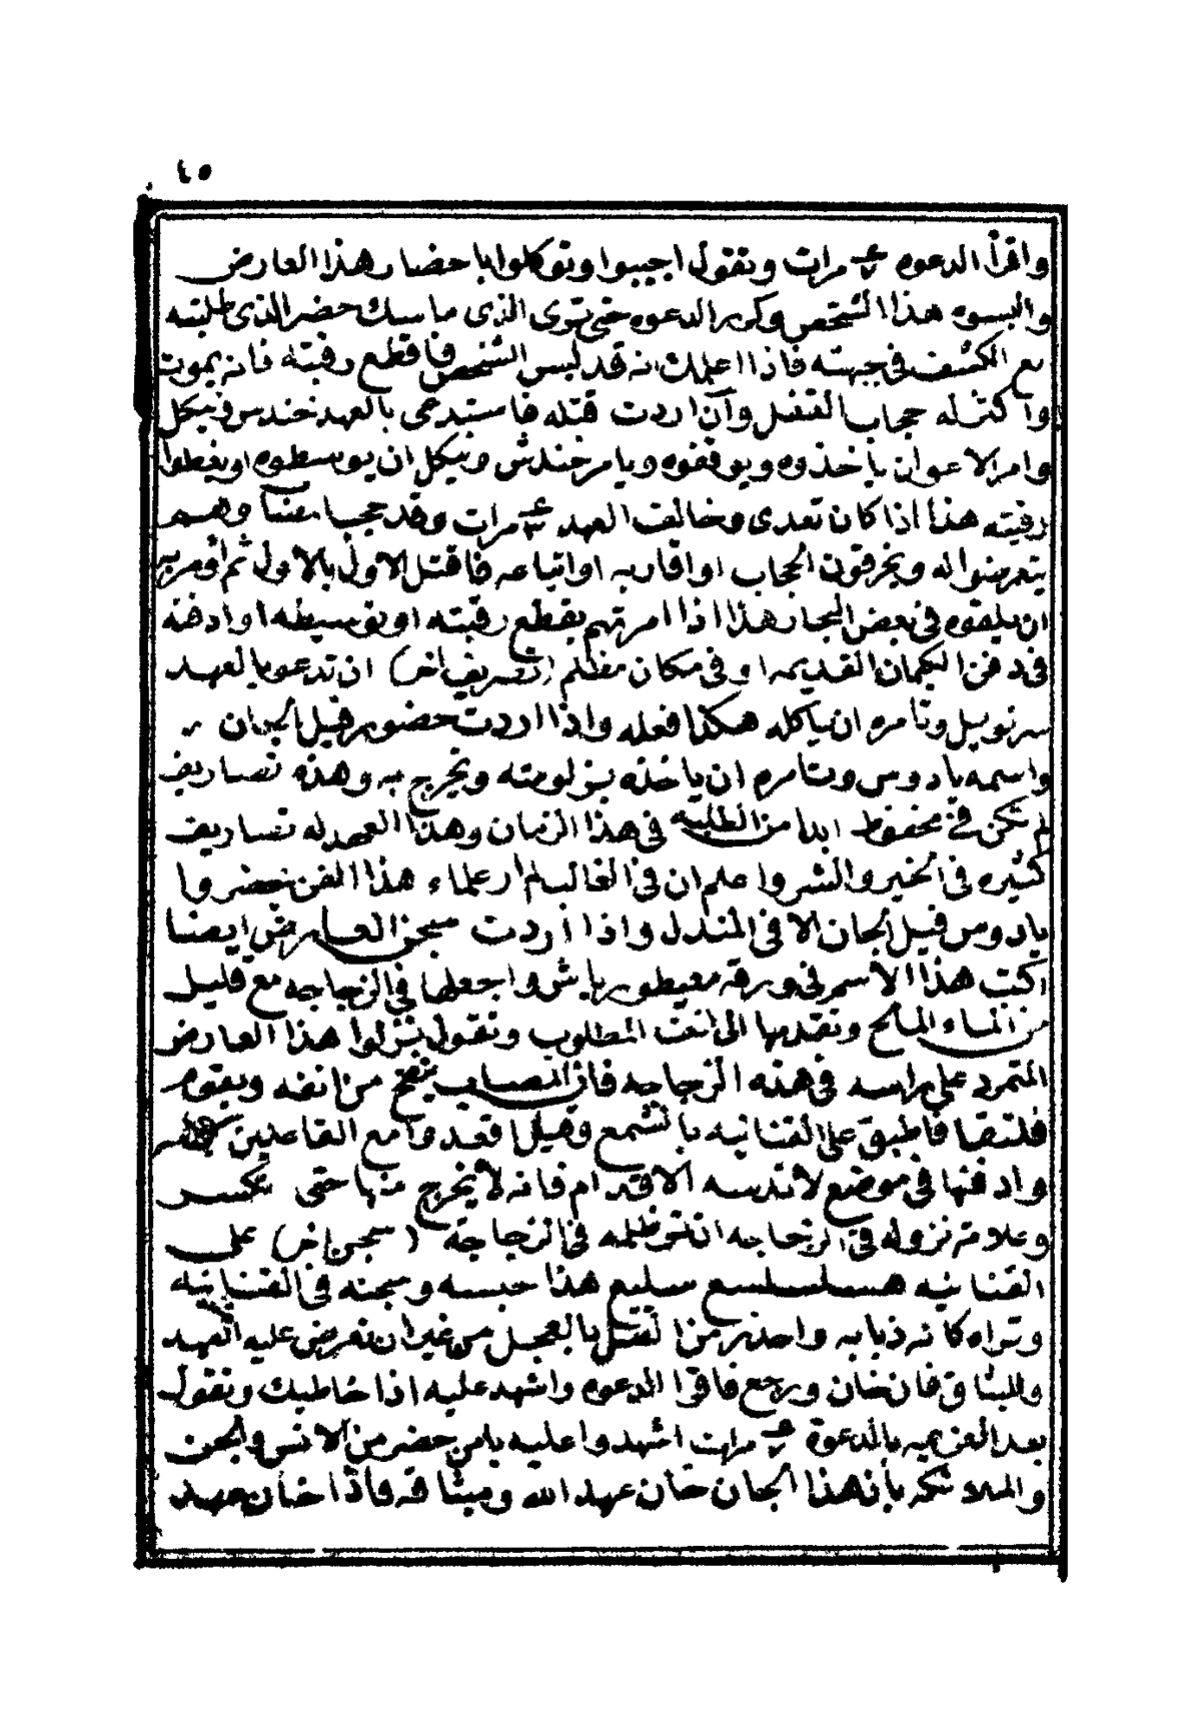 ٤٥
واقرأ الدعوه مرات وتقول اجيبوا وتوكلوا باحضار هذا العارض
والبسوه هذا الشخص وكرر الدعوه حتى ترى الذى ماسك حضر الذى طلبته
مع الكشف فى جبهته فاذا اعلمك انه قد لبس الشخص فاقطع رقبته فانه يموت
واكتب له حجاب القفل وان اردت قتله فاستدعى بالعهد خندس وبيكل
وامر الاعوان ياخذوه ويوقفوه ويامر خندش وبيكل ان يوسطوه او يقطعوا
رقبته هذا اذا كان تعدى وخالف العهد مرات وقد حجبا وهم
يتعرضوا له ويخرقون الحجاب او اقاربه او اتباعه فاقتل الاول بالاول ثم أومر
ان يلقوه فى بعض البحار هذا اذا امرتهم بقطع رقبته او توسيطه او ادفنه
فى دفن الكيمان القديمه او فى مكان مظلم (تصريف اخر) ان تدعو بالعهد
وتامره ان ياكله هكذا فعله واذا اردت حضور قيل الجان
واسمه يادوس وتامره ان ياخذه بزلومته ويخرج به وهذه تصاريف
لم تكن فى محفوظ ابدا من الطلبه فى هذا الزمان وهذا العهد له تصاريف
كثيره فى الخير والشر واعلم ان فى الغالب لم ار علماء هذا الفن حضروا
يادوس قيل الجان الا فى المندل واذا أردت سجن العارض ايضا
اكتب هذا الاسم فى ورقه واجعلها فى الزجاجه مع قليل
من الماء المالح وتقدمها الى انف المطلوب وتقول انزلوا هذا العارض
المتمرد على راسه فى هذه الزجاجه فان المصاب ينفخ من انفه ويقوم
فلتقا فاطبق على القنانيه بالشمع وقيل اقعدوا مع القاعدين
وادفنها فى موضع لاتدسه الاقدام فانه لا يخرج منها حتى تكسر
وعلامة نزوله فى الزجاجه ان ترى ظلمه فى الزجاجة (سجن اخر) على
القنانيه هسلسلسع سليع هذا حبسه وسجنه فى القنانيه
وتراه كانه ذبابه واحذر من القتل بالعجل من غير ان تعرض عليه العهد
والميثاق فان خان ورجع فاقرا الدعوه واشهد عليه اذا خاطبك وتقول
بعد العزيمه بالدعوة مرات اشهدوا عليه يامن حضر من الانس والجن
والملائكه بأن هذا الجان خان عهد الله وميثاقه فاذا خان عهد